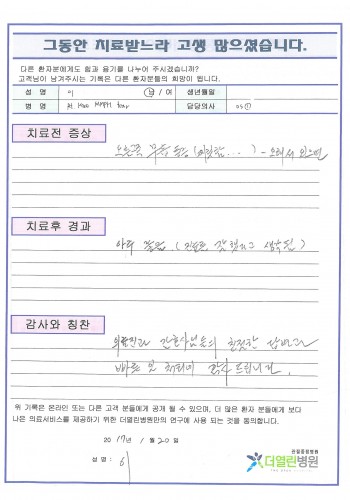 그동안 치료받느라 고생 많으셨습니다.
다른 환자분에게도 힘과 용기를 나누어 주시겠습니까?
고객님이 남겨주시는 기록은 다른 환자분들의 희망이 됩니다.
성 명 이 남 / 여 생년월일
병 명 Rt MMPH tear 담당의사
치료전 증상
오른쪽 무릎 통증 - 오래서 있으면
치료후 경과
아주 좋음. (진료도 잘했다고 생각됨)
감사와 칭찬
의료진과 간호사님들의 친절한 답변과
빠른 처리에 감사 드립니다.
위 기록은 온라인 또는 다른 고객 분들에게 공개 될 수 있으며, 더 많은 환자 분들에게 보다
나은 의료서비스를 제공하기 위한 더열린병원만의 연구에 사용 되는 것을 동의합니다.
2017년 1월 20일
성 명 : 이
관절중점병원
더열린병원